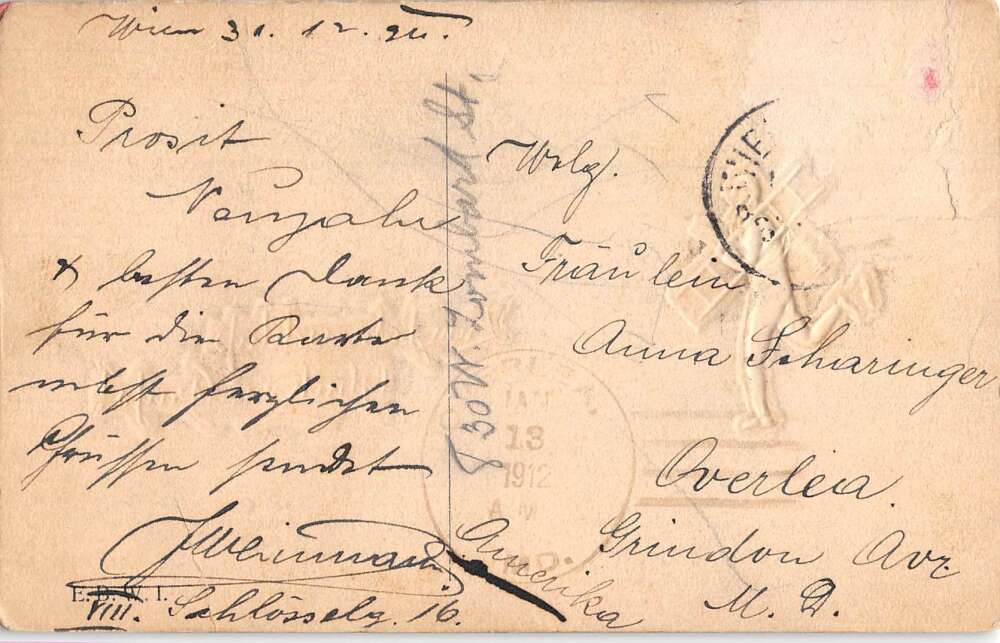 Wien 31. 12. 911.
Prosit
Neujahr
& besten Dank
für die Karte
nebst herzlichen
Grüssen sendet
JWeinmann
E.D.W.I.
VIII. Schlösselg. 16.
830 N. Lombard St.
Wolg.
Fräulein
Anna Scharinger
Overlea.
Grindon Ave
M. D.
Amerika
JAN
13
1912
A M